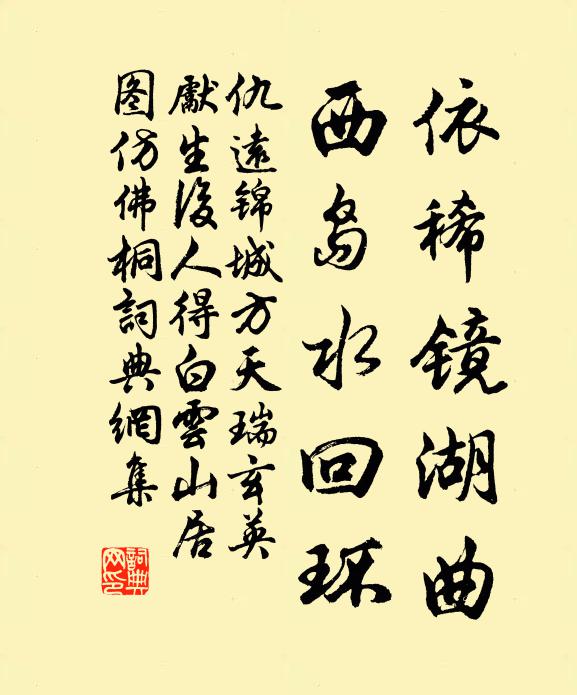 依稀镜湖曲
西岛水回环
仇遠锦城方天瑞玄英
獻生後人得白雲山居
图仿佛桐詞典網集
詞典网印